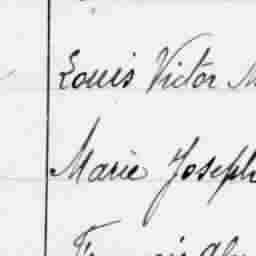 Louis Victor M
Marie Joseph